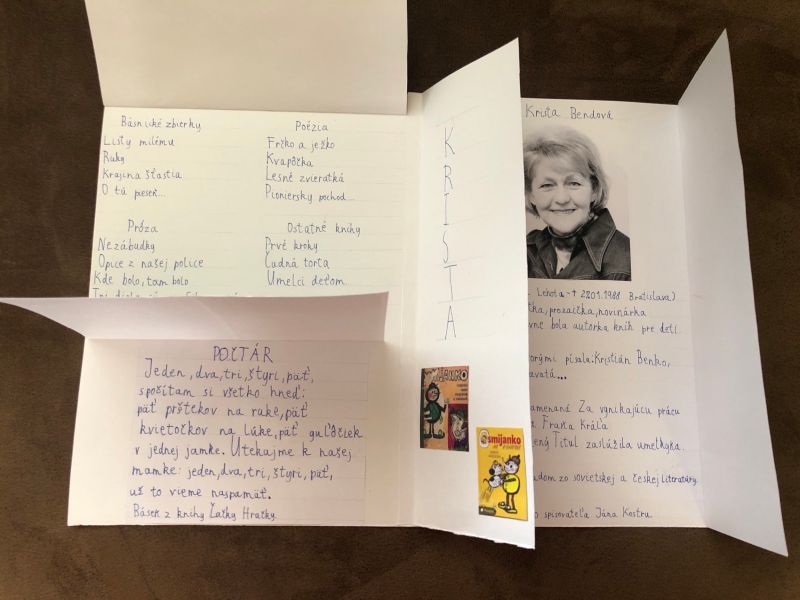 Básnické zbierky
Listy milému
Ruky
Krajina šťastia
O tú pieseň...
Poézia
Frčko a ježko
Kvapôčka
Lesné zvieratká
Pioniersky pochod...
Próza
Nezábudky
Opice z našej police
Kde bolo, tam bolo
Ostatné knihy
Prvé kroky
Čudná torta
Umelci deťom
POČTÁR
Jeden, dva, tri, štyri, päť,
spočítam si všetko hneď:
päť prštekov na ruke, päť
kvietočkov na lúke, päť guľôčiek
v jednej jamke. Utekajme k našej
mamke: jeden, dva, tri, štyri, päť,
už to vieme naspamäť.
Básen z knihy Čačky Hračky.
KRISTA
Osmijanko
Krista Bendová
Lehota - † 27.01.1988 Bratislava)
tka, prozaička, novinárka
vne bola autorka kníh pre deti
orými písala: Kristián Benko,
avatá...
amenané Za vynikajúcu prácu
a Fraňa Kráľa
ený Titul zaslúžila umelkyňa.
adom zo sovietskej a českej literatúry.
o spisovateľa Jána Kostru.